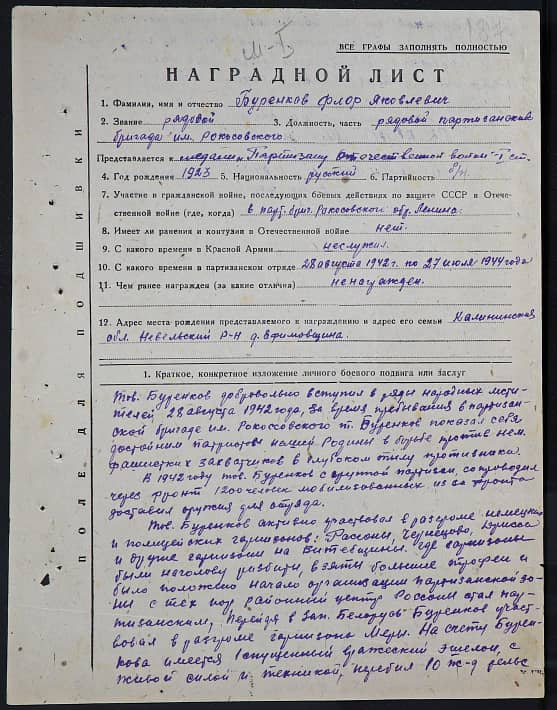 М-Б
187
ВСЕ ГРАФЫ ЗАПОЛНЯТЬ ПОЛНОСТЬЮ
НАГРАДНОЙ ЛИСТ
1. Фамилия, имя и отчество Буренков Флор Яковлевич
2. Звание рядовой 3. Должность, часть рядовой партизанской
бригады им. Рокосовского
Представляется к медали „Партизану Отечественной войны" I ст.
4. Год рождения 1923 5. Национальность русский 6. Партийность б/п
7. Участие в гражданской войне, последующих боевых действиях по защите СССР в Отече-
ственной войне (где, когда) в парт. бриг. Рокосовской обл. Ленина
8. Имеет ли ранения и контузии в Отечественной войне нет.
9. С какого времени в Красной Армии неслужил.
10. С какого времени в партизанском отряде 28 августа 1942 г. по 27 июля 1944 года
11. Чем ранее награжден (за какие отличия) ненагражден.
12. Адрес места рождения представляемого к награждению и адрес его семьи Калининская
обл. Невельский р-н д. Ефимовщина.
1. Краткое, конкретное изложение личного боевого подвига или заслуг
Тов. Буренков добровольно вступил в ряды народных мсти-
телей 28 августа 1942 года, за время пребывания в партизан-
ской бригаде им. Рокосовского т. Буренков показал себя
достойным патриотом нашей Родины в борьбе против нем.
фашистких захватчиков в глубоком тылу противника.
В 1942 году тов. Буренков с группой партизан, сопроводил
через фронт 1200 человек мобилизованных, из за фронта
доставил оружия для отряда.
Тов. Буренков активно участвовал в разгроме немецких
и полицейских гарнизонов: Россоны, Чернецово, Дрисса
и другие гарнизоны на Витебщины. Где гарнизоны
были наголову разбиты, взяты большие трофеи и
было положено начало организации партизанской зо-
ны с тех пор районный центр Россоны стал пар-
тизанским, Перейдя в Зап. Белорусь Буренков участ-
вовал в разгроме гарнизона Меры. На счету Бурен-
кова имеется 1 спущенный вражеский эшелон, с
живой силой и техникой, перебил 10 ж-д рельс
ПОЛЕ ДЛЯ ПОДШИВКИ